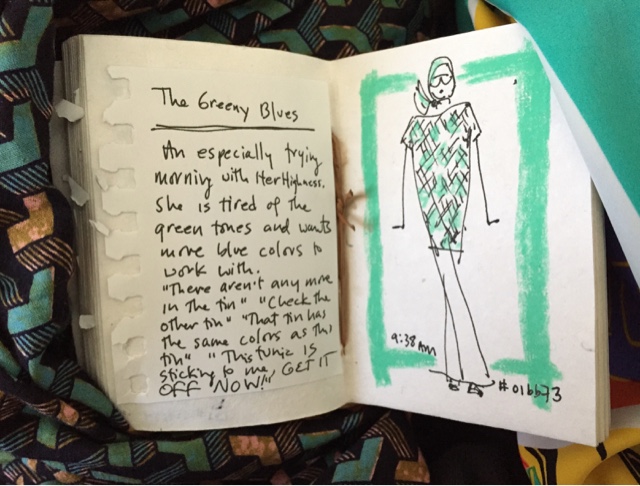 The Greeny Blues
An especially trying
morning with HerHighness.
She is tired of the
green tones and wants
more blue colors to
work with.
"There aren't any more
in the tin" "Check the
other tin" "That tin has
the same colors as this
tin" "This tunic is
sticking to me, GET IT
OFF NOW!"
9:38 AM
#01bb73